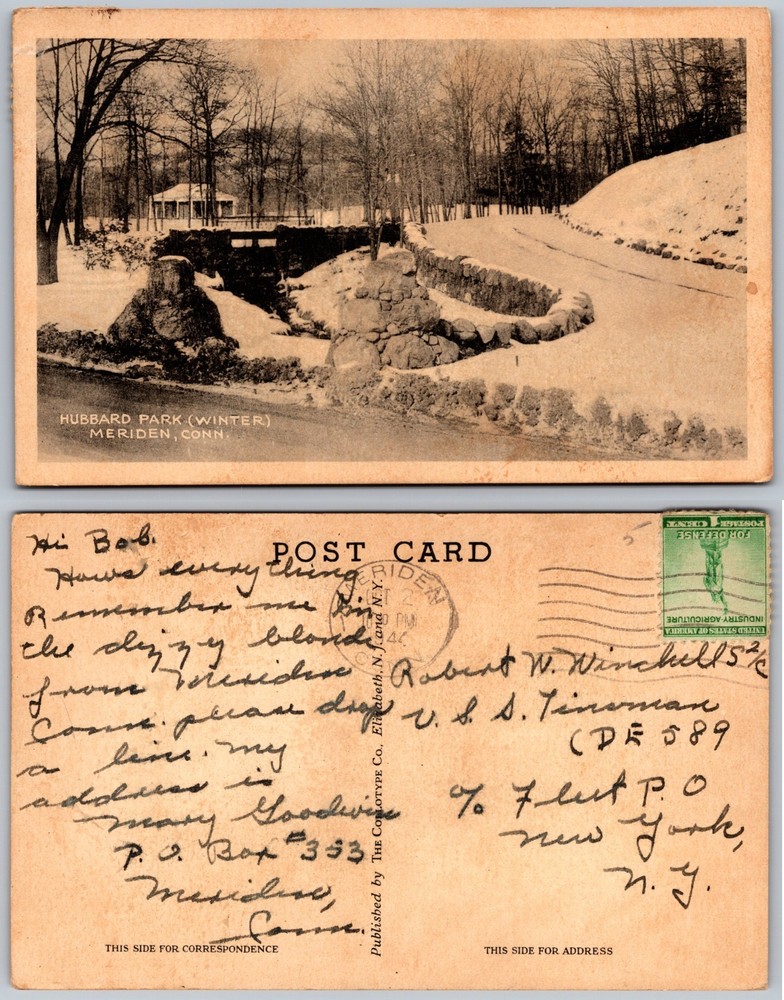 HUBBARD PARK (WINTER)
MERIDEN, CONN.
POST CARD
Hi Bob.
Hows everything
Remember me I'm
the dizzy blonde
from Meriden
Conn. please drop
a line. My
address is
Mary Goodwin
P.O. Box #353
Meriden,
Conn.
THIS SIDE FOR CORRESPONDENCE
Published by THE COLLOTYPE CO., Elizabeth, N.J. and N.Y.
MERIDEN
OCT 2
PM
CONN
UNITED STATES OF AMERICA
INDUSTRY AGRICULTURE
FOR DEFENSE
POSTAGE 1 CENT
5
Robert W. Winchell S 2/c
U. S. S. Tinsman
(DE 589
c/o Fleet P. O
New York,
N. Y.
THIS SIDE FOR ADDRESS